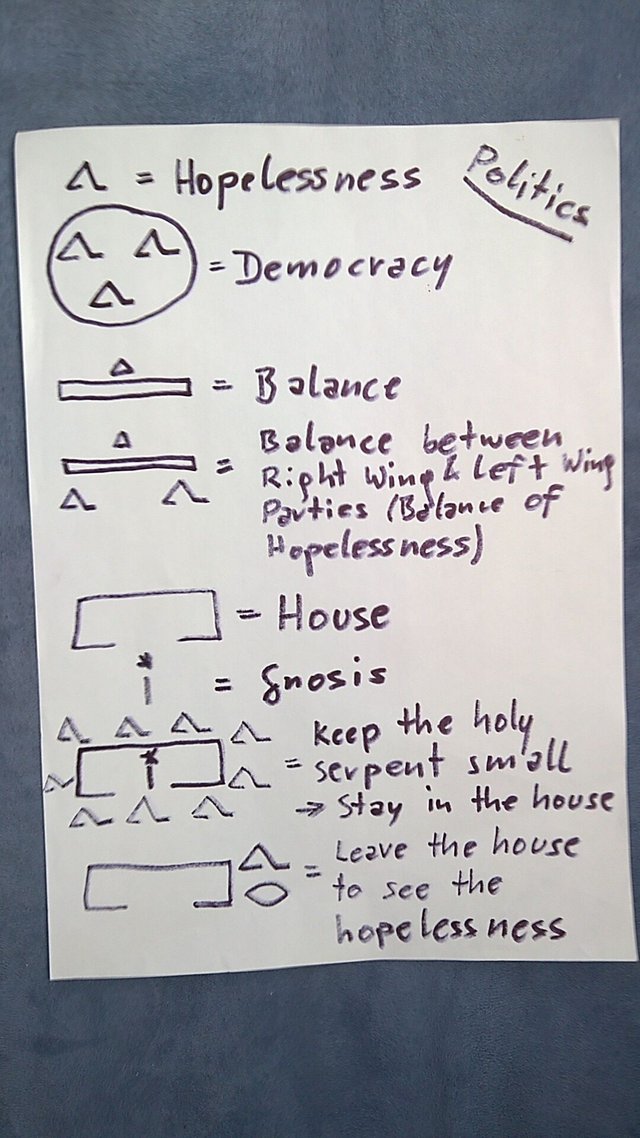 = Hopelessness
Politics
= Democracy
= Balance
= Balance between
Right Wing & Left Wing
Parties (Balance of
Hopelessness)
= House
= Gnosis
= keep the holy
serpent small
→ Stay in the house
= Leave the house
to see the
hopelessness